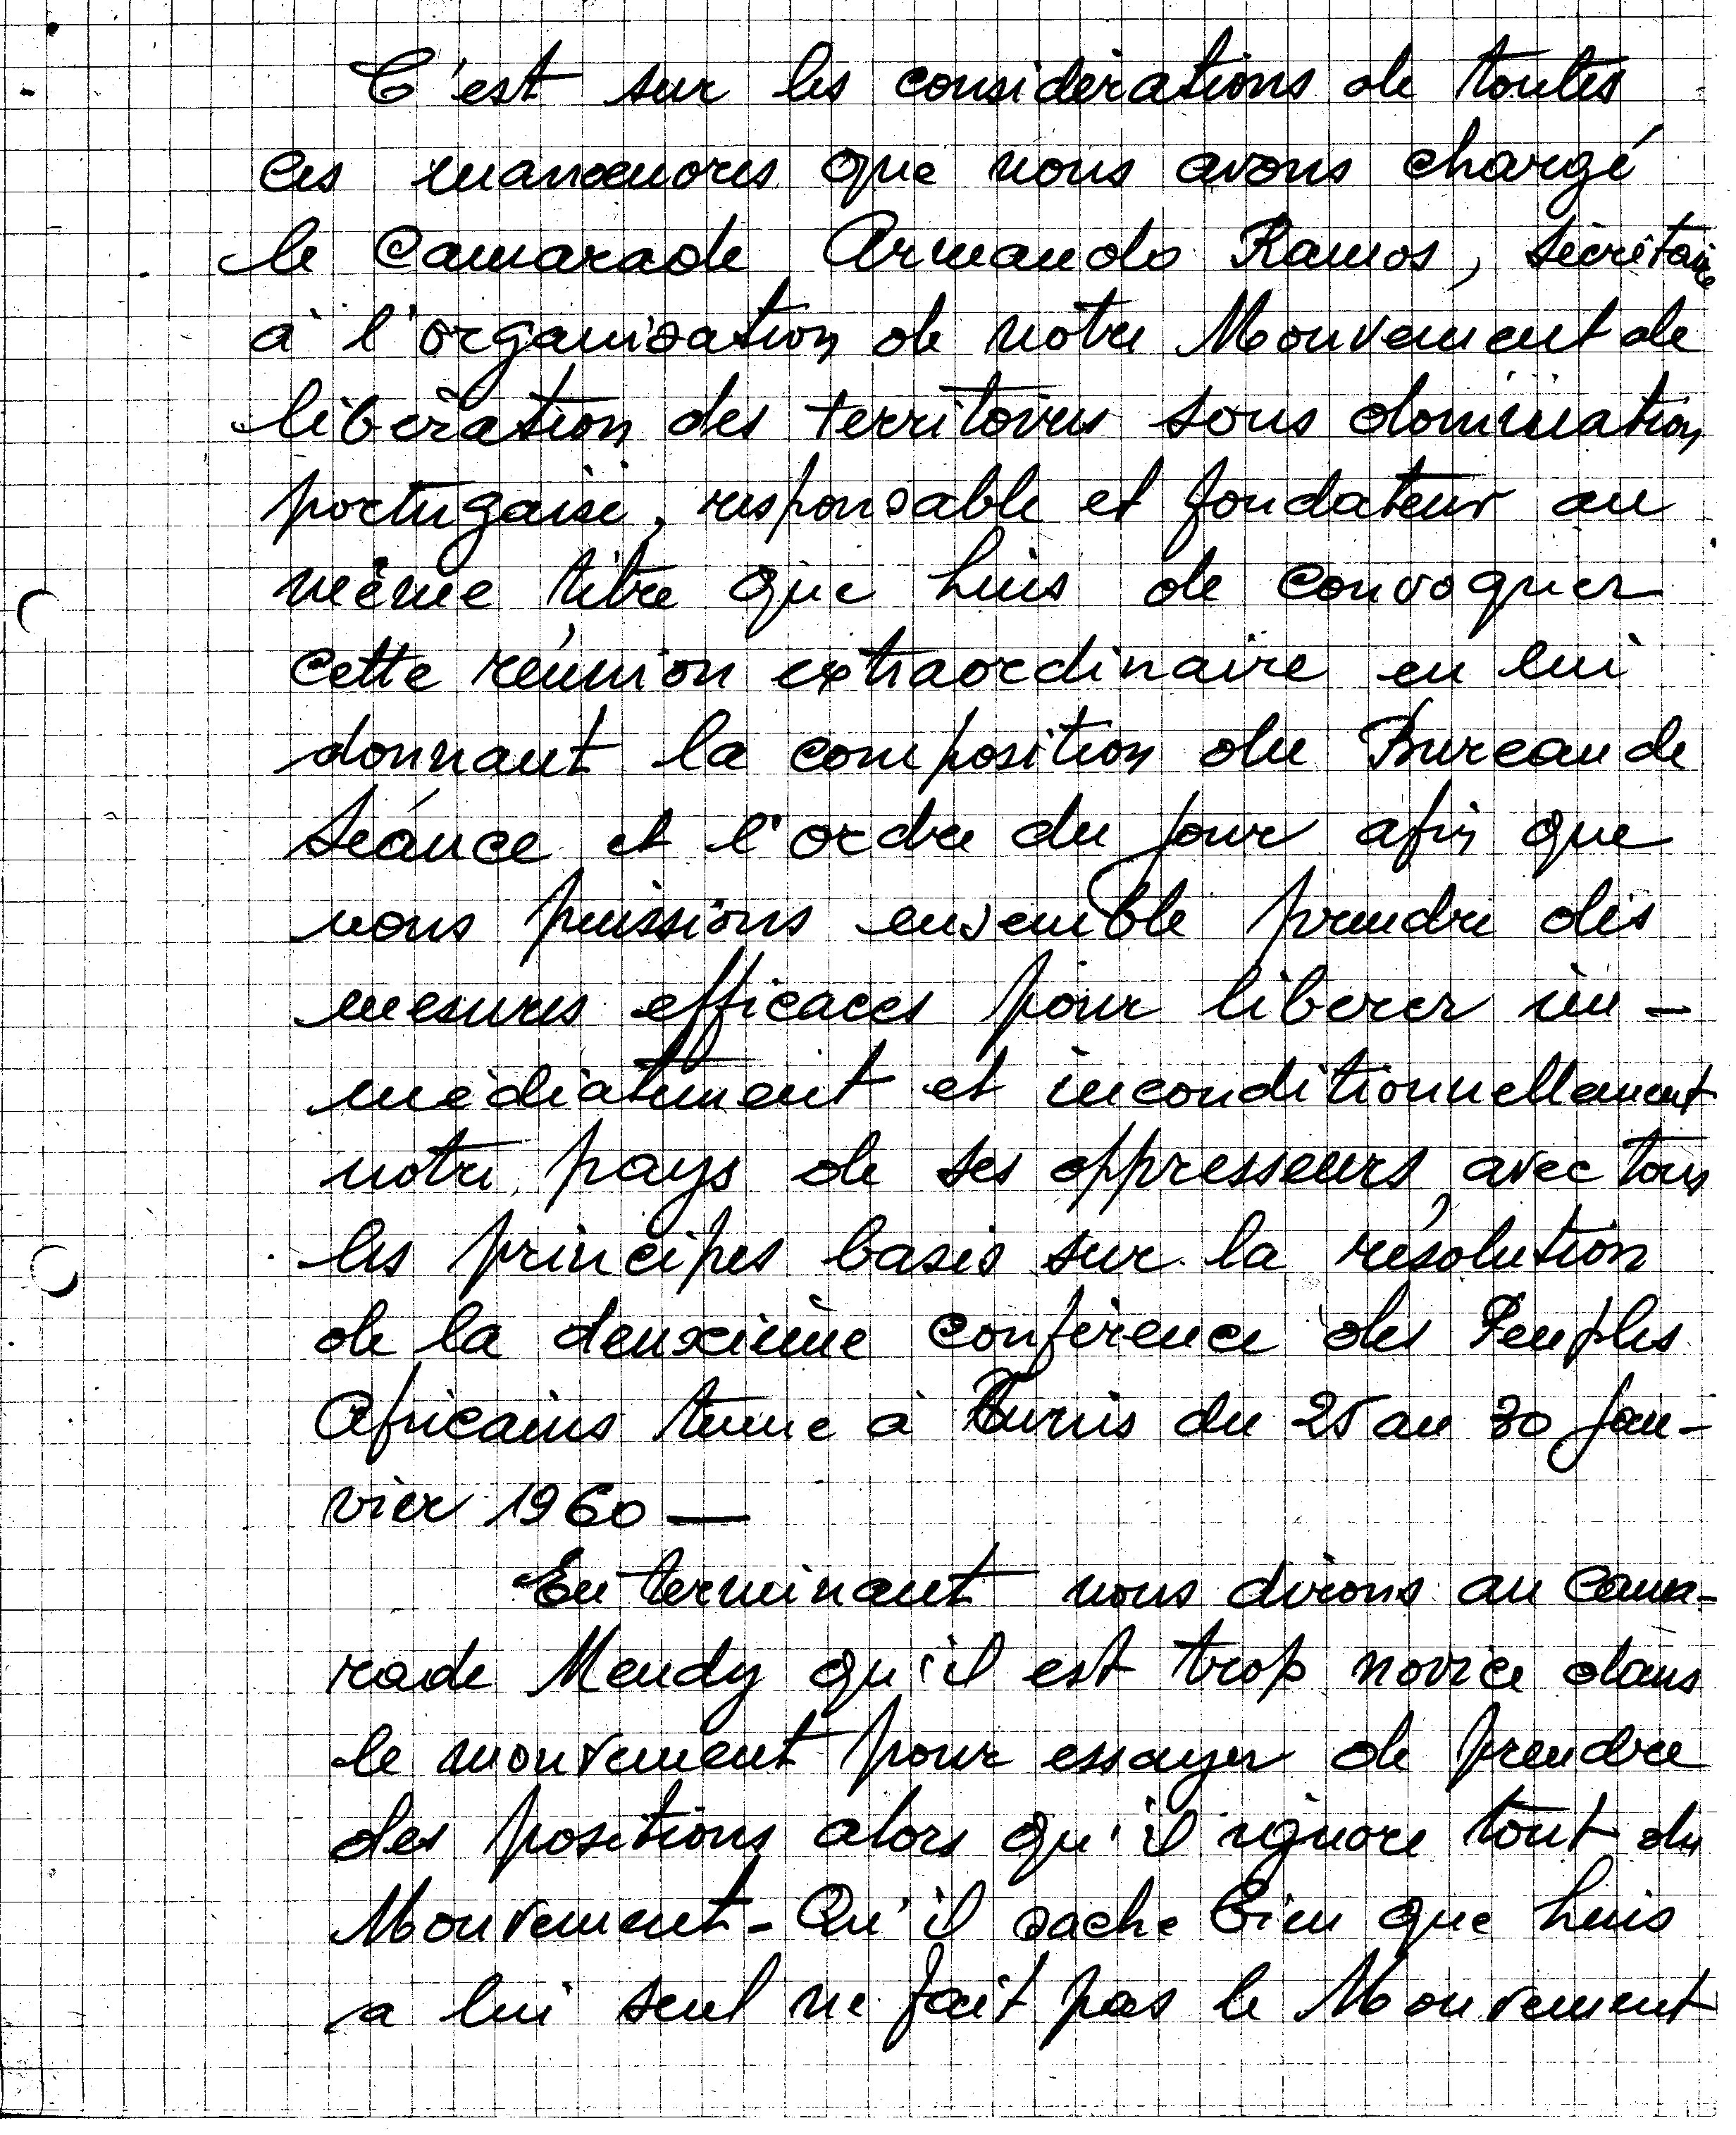 C'est sur les considérations de toutes
ces manoeuvres que nous avons chargé
le Camarade Armando Ramos, Sécrétaire
à l'organisation de notre Mouvement de
libération des territoires sous domination
portugaise, responsable et fondateur au
même titre que Luis de convoquer
cette réunion extraordinaire en lui
donnant la composition du Bureau de
Séance et l'ordre du jour afin que
nous puissions ensemble prendre des
mesures efficaces pour liberer im-
médiatement et inconditionnellement
notre pays de ses oppresseurs, avec tous
les principes basés sur la résolution
de la deuxième conférence des Peuples
Africains tenue à Tunis du 25 au 30 Jan-
vier 1960 —
En terminant nous dirons au Cama-
rade Mendy qu'il est trop novice dans
le mouvement pour essayer de prendre
des positions alors qu'il ignore tout du
Mouvement - Qu'il sache bien que Luis
a lui seul ne fait pas le Mouvement